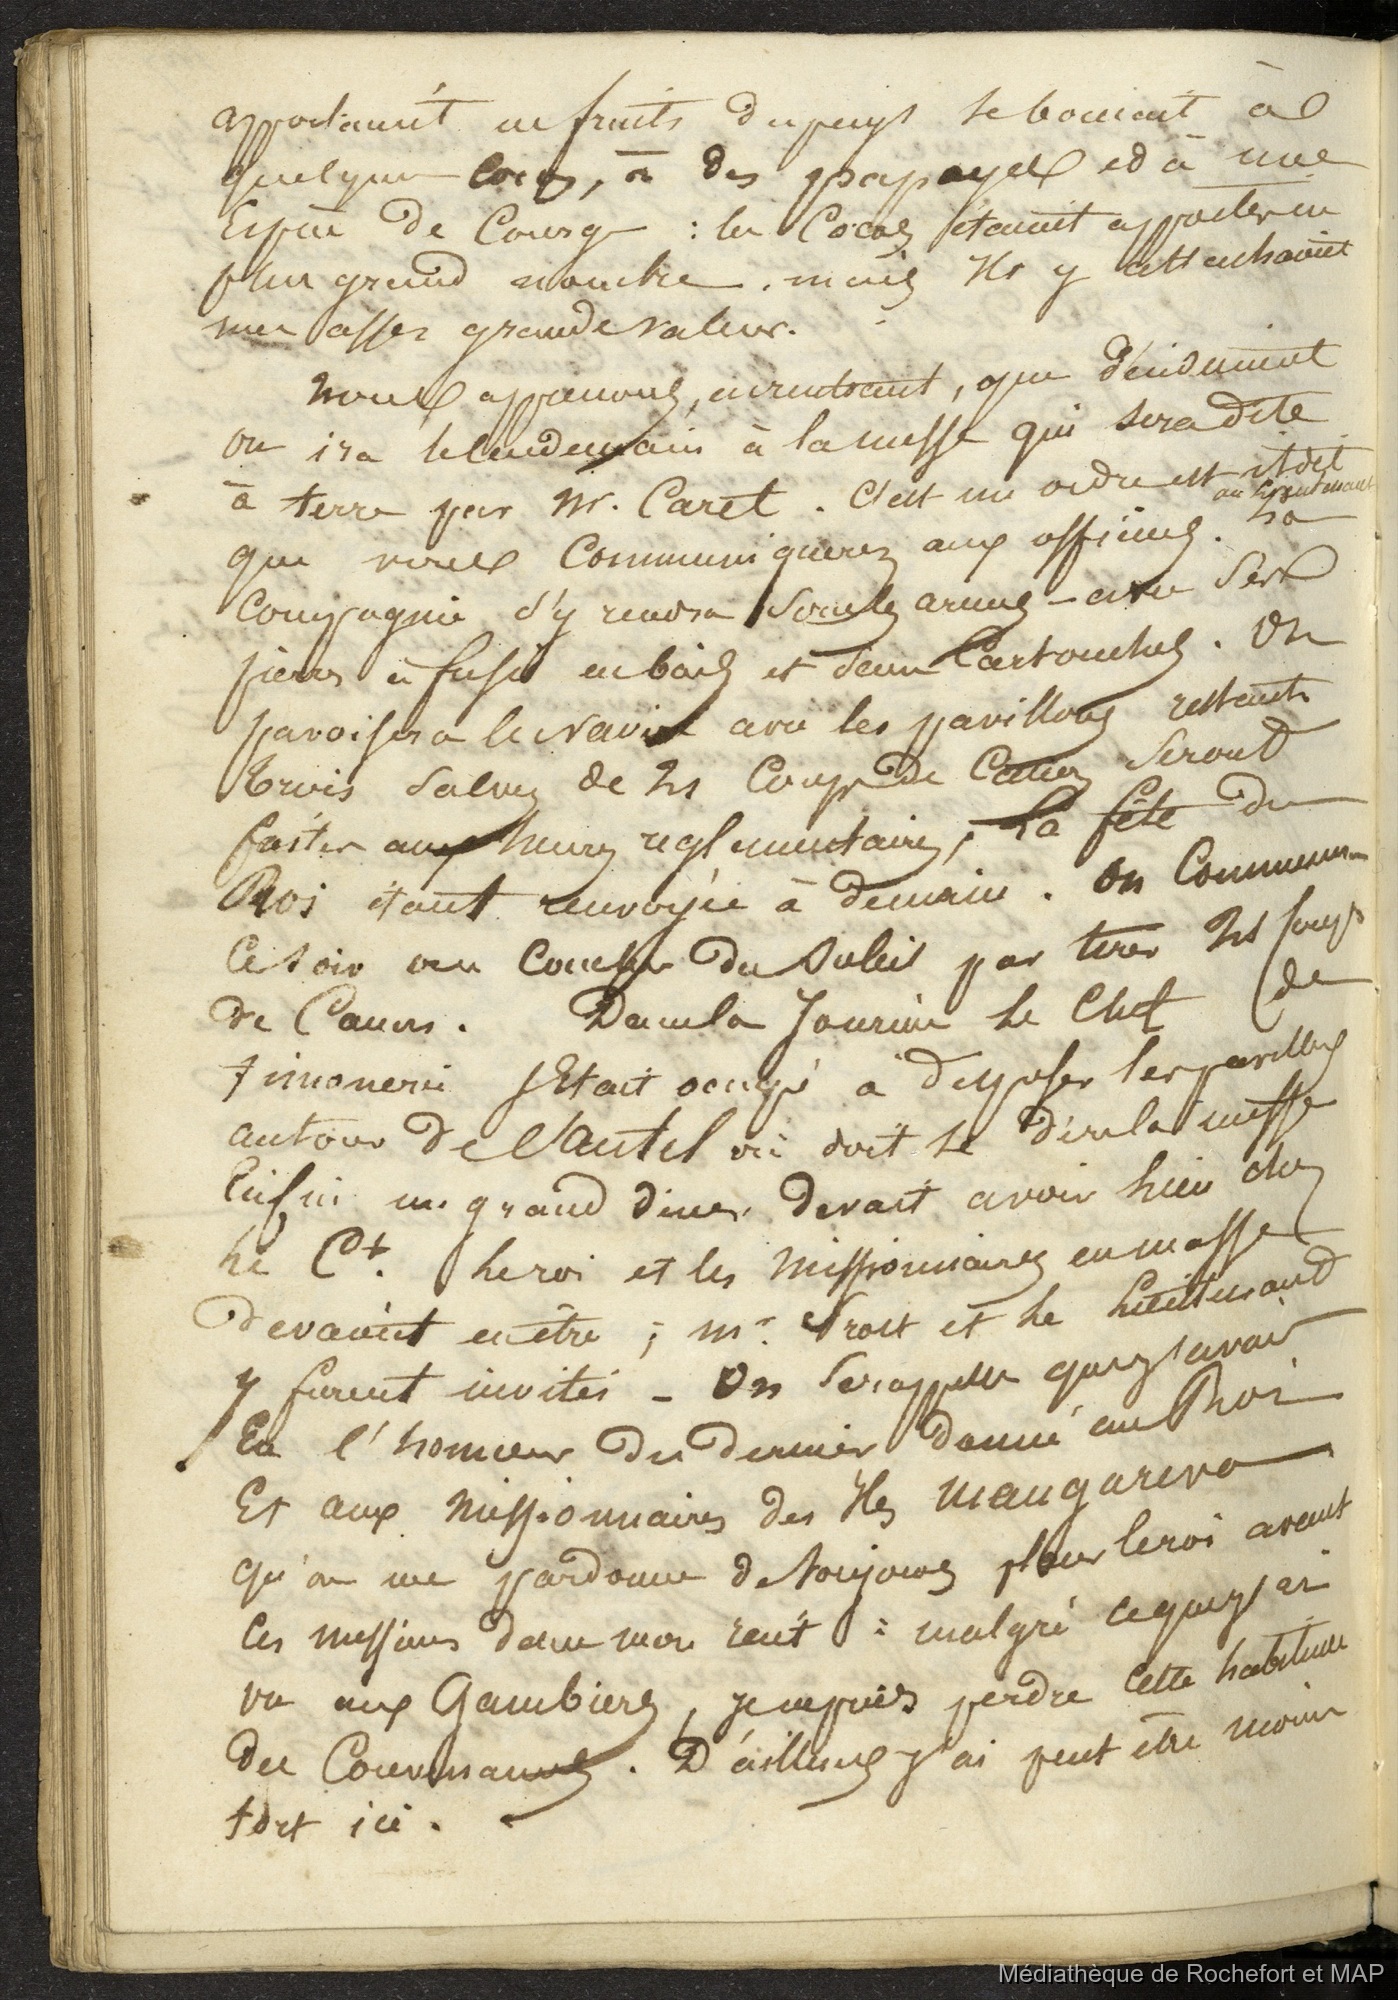 apportaient en fruits du pays se bornait à
quelques cocos, à des papayes et à une
Espèce de Courge : les Cocos étaient apportés en
plus grand nombre, mais Ils y attachaient
une assez grande valeur.
Nous apprenons, en rentrant, que décidément
on ira le lendemain à la messe qui sera dite
à terre par Mr. Caret. C'est un ordre est il dit
au lieutenant
que vous Communiquerez aux officiers. La
Compagnie s'y rendra sous les armes – avec des
pierres à fusil en bois et sans Cartouches. On
pavoisera le Navire avec les pavillons restants
trois salves de 21 Coups de Canon seront
faites aux heures reglementaires, La fête du
Roi étant renvoyée à demain. On Commence
Ce soir au Coucher du Soleil par tirer 21 Coups
de Canon. Dans la Journée le Chef de
timonerie s'Etait occupé à disposer les pavillons
autour de l'autel où doit se dire la messe
Enfin un grand diner devait avoir lieu chez
le Ct. le roi et les Missionnaires en masse
devaient en être ; Mr. et le lieutenant
y furent invités – On se rappelle que j'avais
En l'honneur du dernier donné au Roi
Et aux Missionnaires des Iles Mangareva
qu'on me pardonne de toujours placer le roi avant
les messieurs dans mon récit : malgré ce que j'ai
vu aux Gambiers, je ne puis perdre cette habitude
des Convenances. D'ailleurs j'ai peut être moins
tort ici.
Médiathèque de Rochefort et MAP